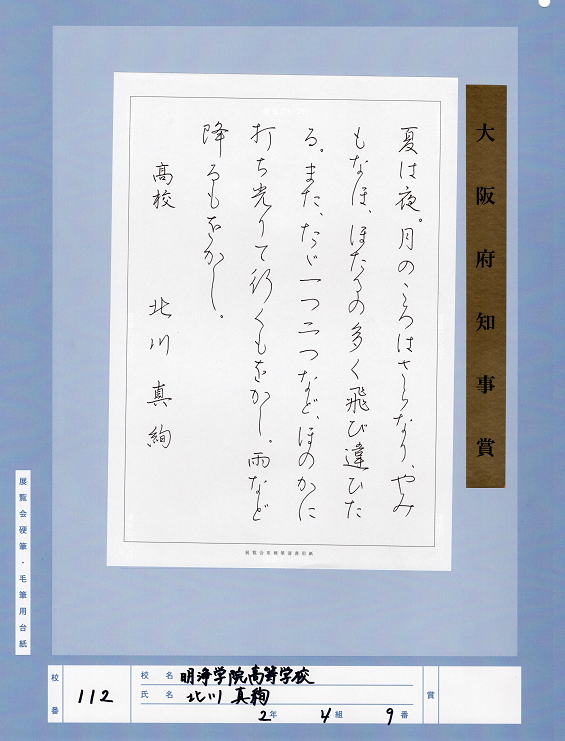 大阪府知事賞
夏は夜。月のころはさらなり、やみ
もなほ、ほたるの多く飛び違ひた
る。また、ただ一つ二つなど、ほのかに
打ち光りて行くもをかし。雨など
降るもをかし。
高校 北川真絢
展覧会硬筆・毛筆用台紙
校番 112
校名 明浄学院高等学校
氏名 北川真絢
2年 4組 9番
賞